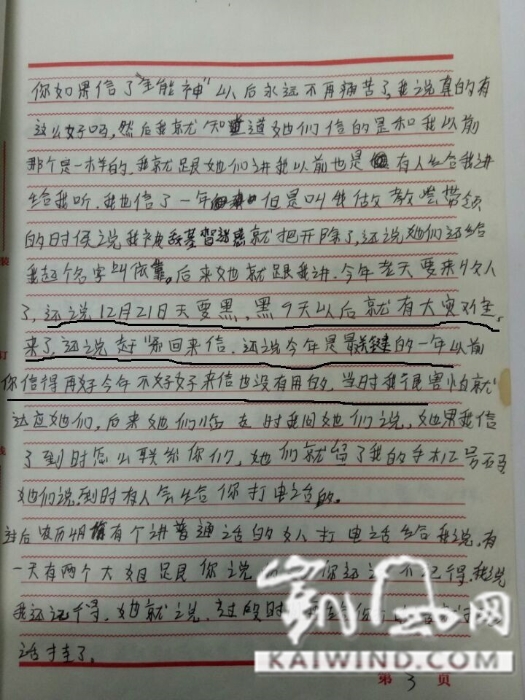 你如果信了"全能神"以后永远不再痛苦了,我说真的有
这么好吗,然后我就知道她们信的是和我以前
那个是一样的,我就跟她们讲我以前也是有人给我讲
给我听,我也信了一年 但是叫我做教堂带领
的时侯说我 就把开除了,还说她们还给
我起个名字叫依靠。后来她就跟我讲,今年老天要来收人
了,还说12月21日天要黑,黑9天以后就有大灾难
来了,还说赶 回来信,还说今年是最关键的一年以前
你信得再好今年不好好来信也没有用的。当时我很害怕就
答应她们,后来她们临走时我问她们说,如果我信
了到时怎么联系你们,她们就留了我的手机号码
她们说,到时有人会给你打电话的。
过后农历4月 有个讲普通话的女人打电话给我说,有
一天有两个大姐跟你说 你还记不记得,我说
我还记得,她就说,过段时
话挂了。
凯风网
KAIWIND.COM
第 3 页